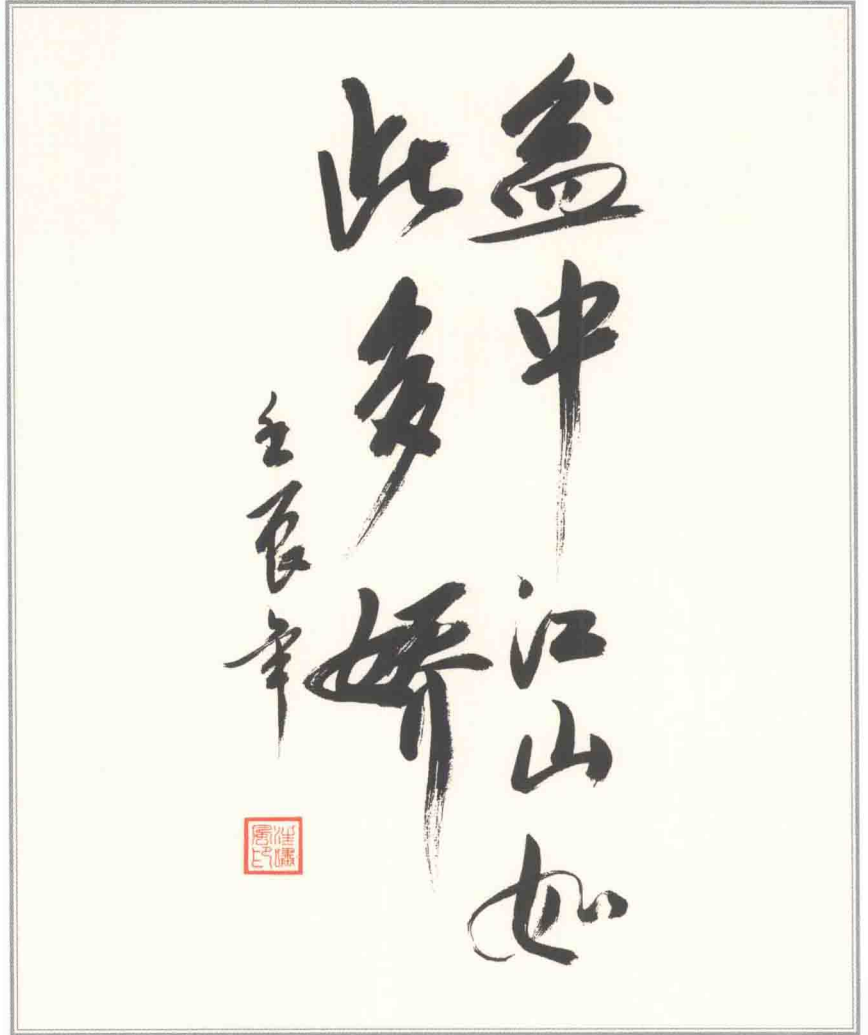 盆中江山如
此多娇
壬辰年